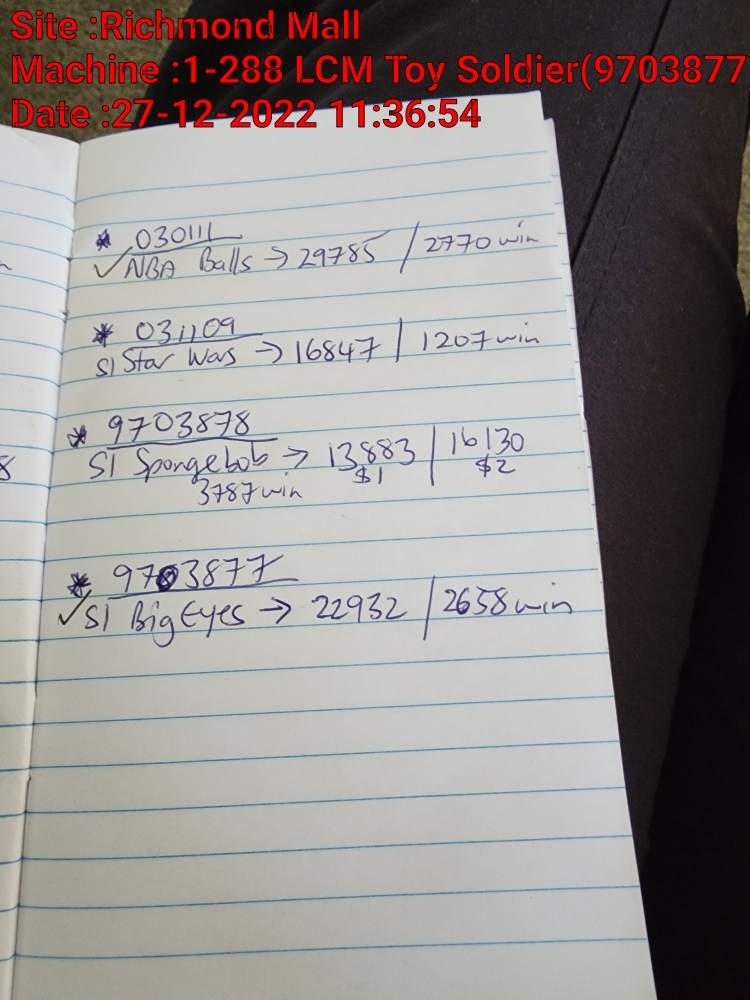 Site :Richmond Mall
Machine :1-288 LCM Toy Soldier(9703877)
Date :27-12-2022 11:36:54
* 030111
✓NBA Balls → 29785 / 2770 win
* 031109
S1 Star Wars → 16847 | 1207 win
* 9703878
S1 Spongebob → 13883 | 16130
$1 $2
3787 win
* 9703877
✓S1 Big Eyes → 22932 / 2658 win
8